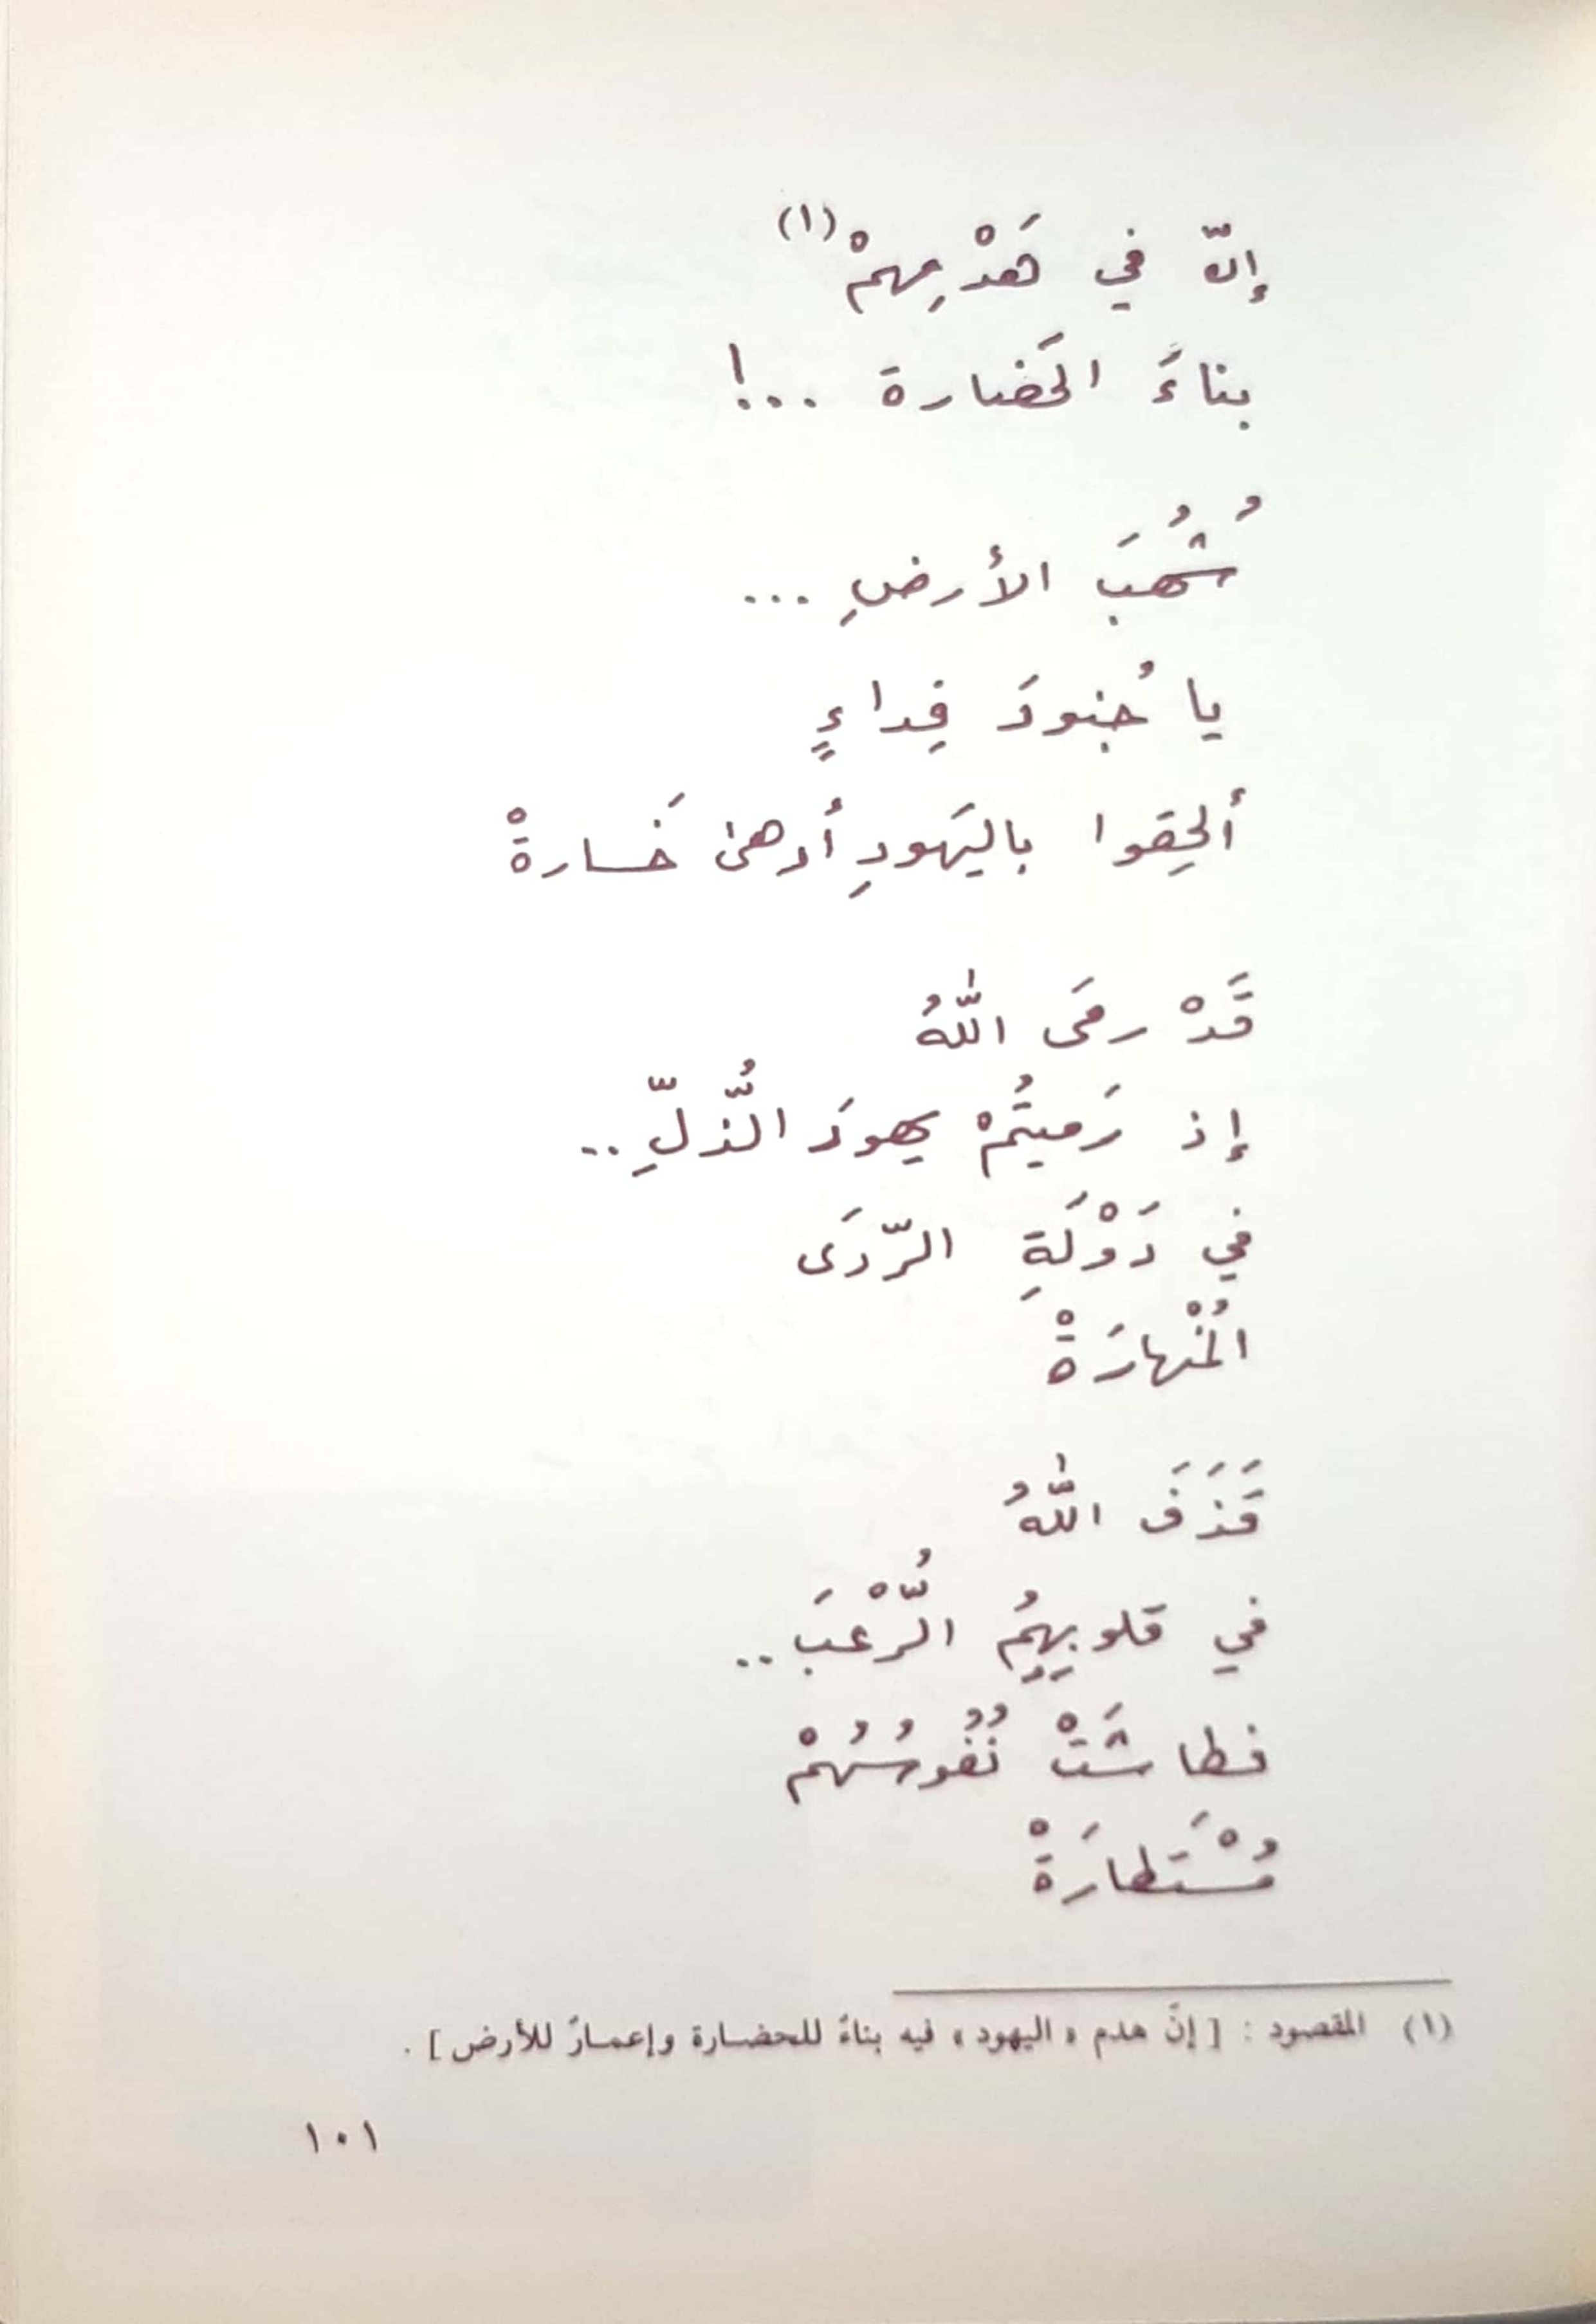 إنّ في هَدْمِهمْ (١)
بناءَ الحَضارة ...!
شُهُبَ الأرضِ ...
يا جُنودَ فِداءٍ
ألحِقوا باليَهودِ أدهىٰ خَسارةْ
قَدْ رمَى اللّٰهُ
إذ رَميتُمْ يهودَ الذُّلِّ ..
في دَوْلَةِ الرّدَى
المُنْهارَةْ
قَذَفَ اللّٰهُ
في قلوبِهِمُ الرُّعْبَ ..
فطاشَتْ نُفُوسُهُمْ
مُسْتَطارَةْ
(١) المقصود : [ إنّ هدم « اليهود » فيه بناءً للحضارة وإعمارً للأرض ] .
١٠١